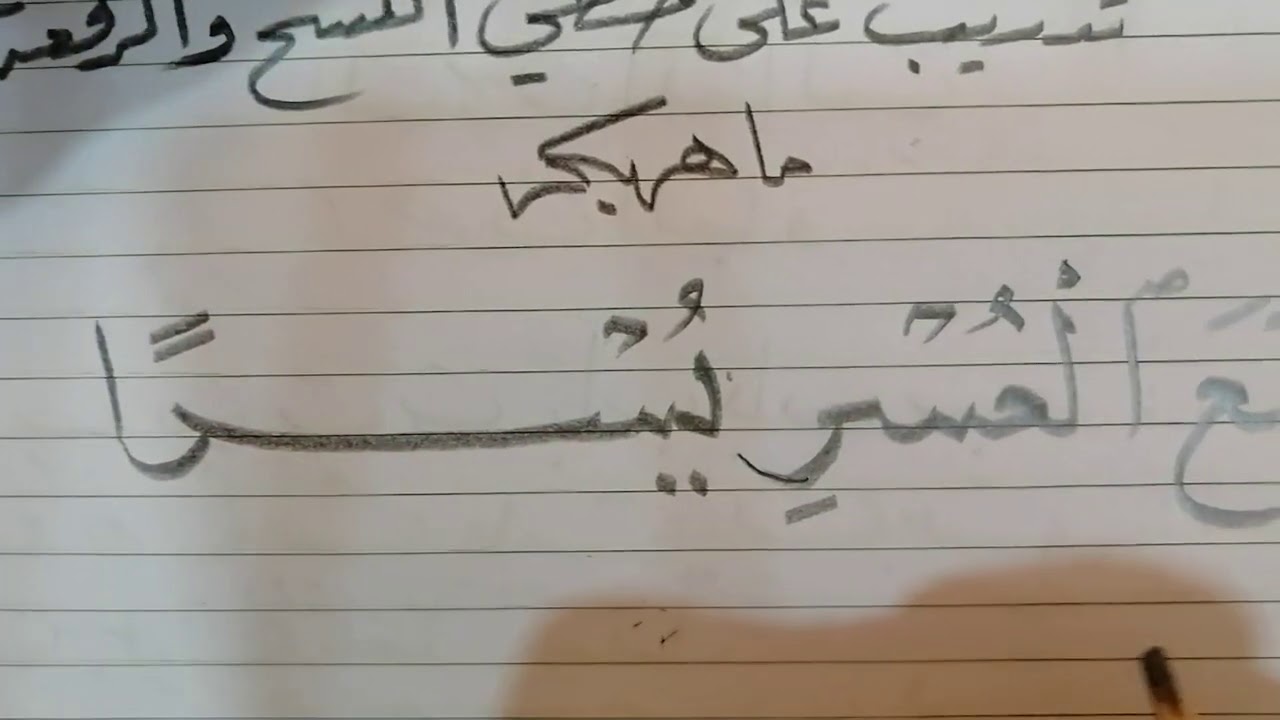 تدريب على خطي النسخ والرقعة
ماهر بكر
ـعَ ٱلْعُسْرِ يُسْرًا